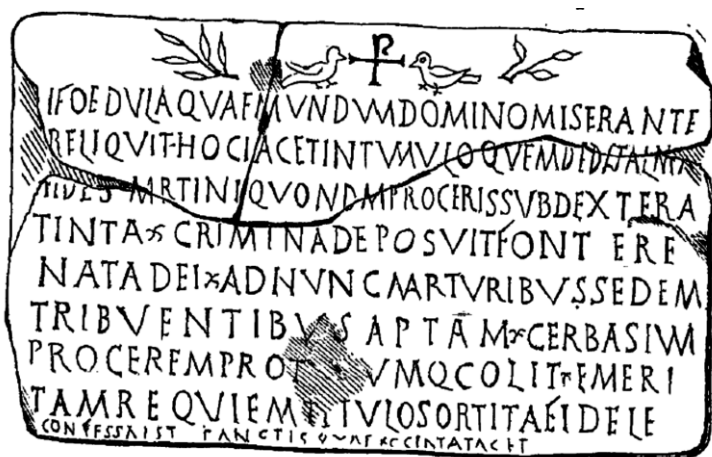 IFOEDVLAQVAEMVNDVMDOMINOMISERANTE
RELIQVITHOCIACETINTVMVLOQVEMDEDITALMA
FIDES MRTINIQVONDMPROCERISSVBDEXTERA
TINTA⨯CRIMINADEPOSVITFONT ERE
NATADEI⨯ADNVNCMARTVRIBVSSEDEM
TRIBVENTIBVSAPTAM⨯CERBASIVM
PROCEREMPROT VMQCOLIT⨯EMERI
TAMREQVIEMTITVLOSORTITAFIDELE
CONFESSAIST SANCTIS